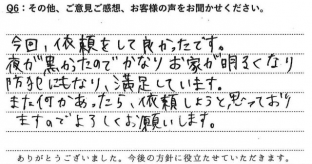 Q6：その他、ご意見ご感想、お客様の声をお聞かせください。
今回、依頼をして良かったです。
夜が黒かったのでかなりお家が明るくなり
防犯にもなり、満足しています。
また何かあったら、依頼しようと思っており
ますのでよろしくお願いします。
ありがとうございました。今後の方針に役立たせていただきます。